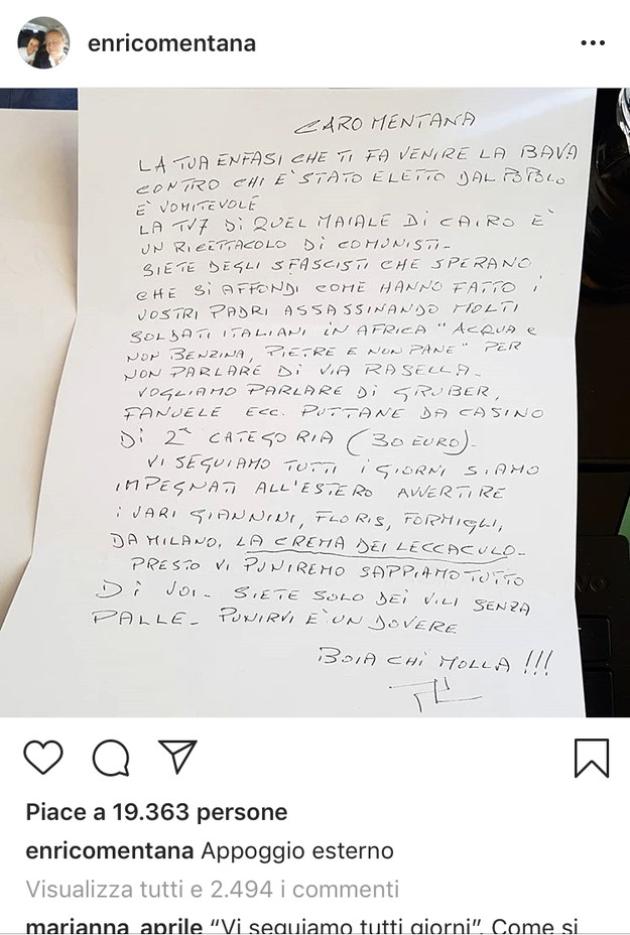 enricomentana
CARO MENTANA
LA TUA ENFASI CHE TI FA VENIRE LA BAVA
CONTRO CHI E' STATO ELETTO DAL POPOLO
E' VOMITEVOLE
LA TV7 Di QUEL MAIALE Di CAIRO E'
UN RICETTACOLO Di COMUNISTI-
SIETE DEGLI SFASCISTI CHE SPERANO
CHE SI AFFONDI COME HANNO FATTO i
VOSTRI PADRI ASSASSINANDO MOLTI
SOLDATI ITALIANI iN AFRICA "ACQUA e
NON BENZINA, PIETRE E NON PANE" PER
NON PARLARE Di VIA RASELLA-
VOGLIAMO PARLARE Di GRUBER,
FANUELE ECC. PUTTANE DA CASINO
Di 2ª CATEGORIA (30 EURO)-
VI SEGUIAMO TUTTI I GIORNI SIAMO
IMPEGNATI ALL'ESTERO AVVERTIRE
i VARI GIANNINI, FLORIS, FORMIGLI,
DA MILANO, LA CREMA DEI LECCACULO-
PRESTO VI PUNIREMO SAPPIAMO TUTTO
Di VOI- SIETE SOLO DEI VILI SENZA
PALLE- PUNIRVI E' UN DOVERE
BOIA CHI MOLLA !!!
Piace a 19.363 persone
enricomentana Appoggio esterno
Visualizza tutti e 2.494 i commenti
marianna_aprile “Vi seguiamo tutti giorni”. Come si